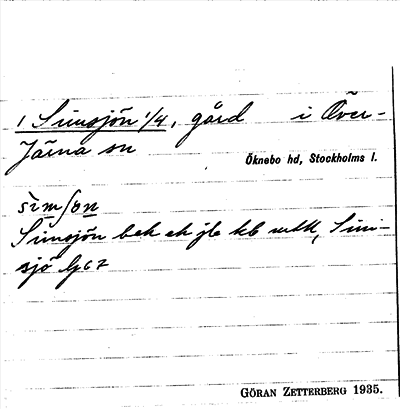 1 Simsjön 1/4, gård i Över-
Järna sn
Öknebo hd, Stockholms l.
sìmʃön
Simsjön bek ek jb kb mtlk, Sim-
sjö Gez
GÖRAN ZETTERBERG 1935.